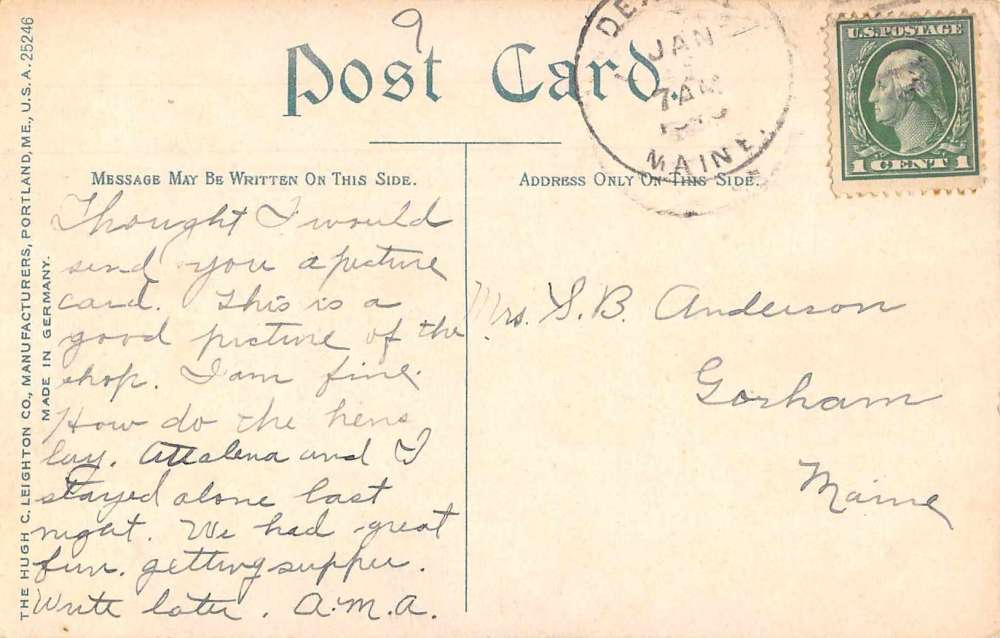 9
Post Card.
U.S. POSTAGE
1 CENT 1
JAN
7 AM
MAINE.
MESSAGE MAY BE WRITTEN ON THIS SIDE.
ADDRESS ONLY ON THIS SIDE.
Thought I would
send you a picture
card. This is a
good picture of the
shop. I am fine.
How do the hens
lay. Attalena and I
stayed alone last
night. We had great
fun. getting supper.
Write later. A.M.A.
Mrs. S. B. Anderson
Gorham
Maine
THE HUGH C. LEIGHTON CO., MANUFACTURERS, PORTLAND, ME., U.S.A. 25246
MADE IN GERMANY.